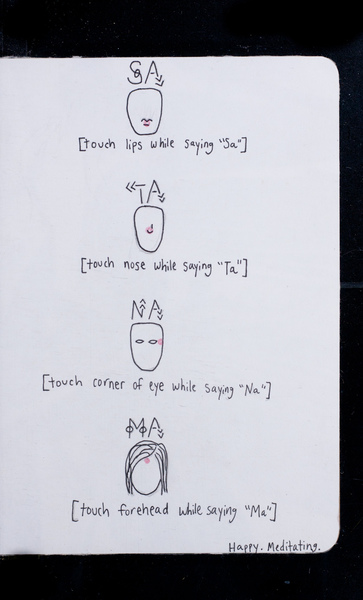 SA
[touch lips while saying "Sa"]
TA
[touch nose while saying "Ta"]
NA
[touch corner of eye while saying "Na"]
MA
[touch forehead while saying "Ma"]
Happy. Meditating.